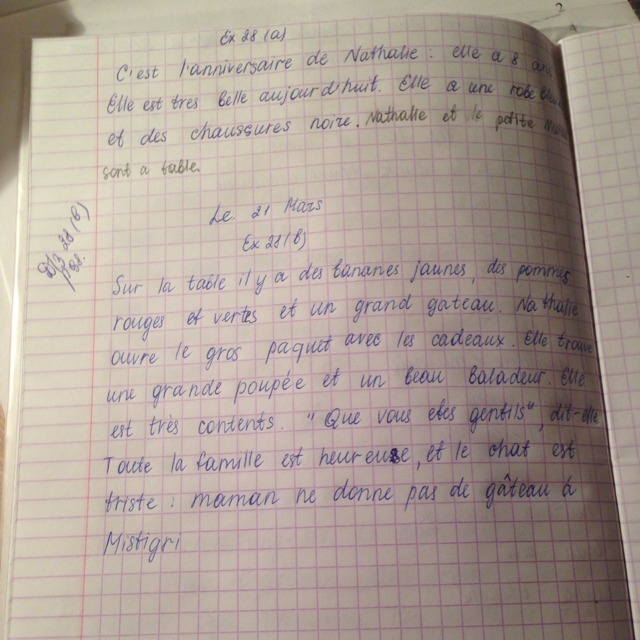 Ex 28 (a)
C'est l'anniversaire de Nathalie : elle a 8 ans
Elle est tres belle aujourd'huit. Elle a une robe
et des chaussures noire. Nathalie et le petite
sont a table.
Le 21 Mars
Ex 28 (b)
Sur la table il y a des bananes jaunes, des pommes
rouges et vertes et un grand gateau. Nathalie
ouvre le gros paquet avec les cadeaux. Elle trouve
une grande poupée et un beau baladeur. Elle
est très contents. "Que vous etes gentils", dit-elle
Toute la famille est heureuse, et le chat est
triste : maman ne donne pas de gâteau à
Mistigri
28 (b)